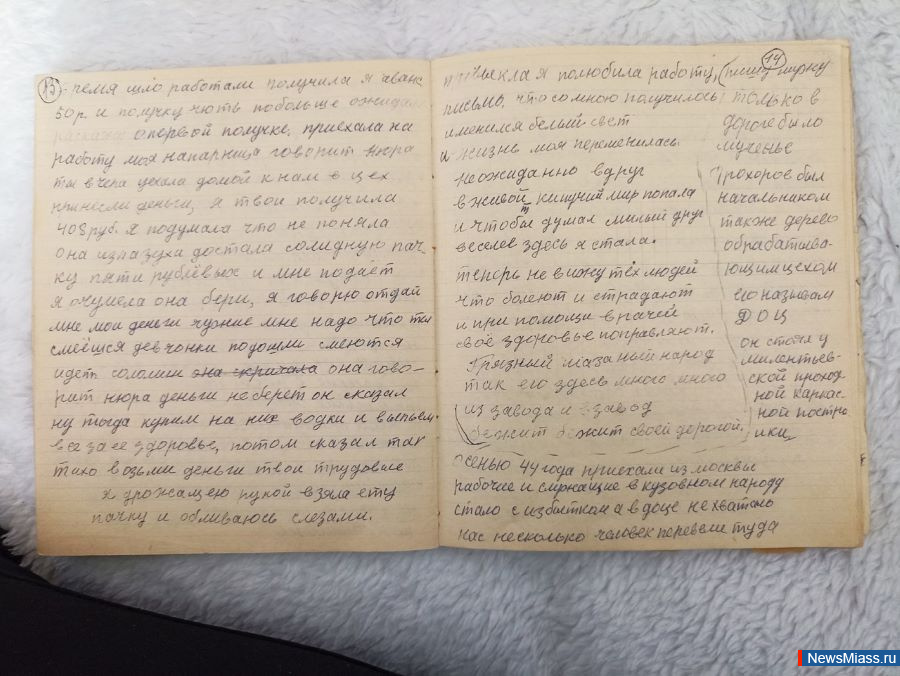 13
время шло работали получила я аванс
50 р. и получку чють побольше ожидала
раскажу о первой получке, приехала на
работу моя напарница говорит Нюра
ты вчера уехала домой к нам в цех
принесли деньги, я твои получила
408 руб. я подумала что не поняла
она из пазуха достала солидную пач-
ку пяти рублёвых и мне подаёт
я очумела она бери, я говорю отдай
мне мои деньги чужие мне надо что ты
смеёшся девчонки подошли смеются
идёт соломин она кричала она гово-
рит нюра деньги не берёт он сказал
ну тогда купим на них водки и выпьем
все за её здоровье, потом сказал так
тихо возьми деньги твои трудовые
я дрожащею рукой взяла ету
пачку и обливаюсь слезами.
14
привыкла я полюбила работу, (пишу мужу
письмо, что со мною получилось
именился белый свет
и жизнь моя переменилась
неожиданно вдруг
в живой кипучий мир попала
и чтобы т думал милый друг
веселее здесь я стала.
теперь не вижу тех людей
что болеют и страдают
и при помощи врачей
своё здоровье поправляют.
Грязный мазаный народ
так его здесь много много
из завода и в завод
бежит бежит своей дорогой.
только в
дороге было
мученье
Прохоров был
начальником
также дерево
обрабатыва-
ющим цехом
его называем
ДОЦ
он стоял у
милентьев-
ской проход-
ной каркас-
ной постро
ики
осенью 44 года приехали из москвы
рабочие и служащие в кузовном народу
стало с избытком а в доце не хватало
нас несколько человек перевели туда
NewsMiass.ru